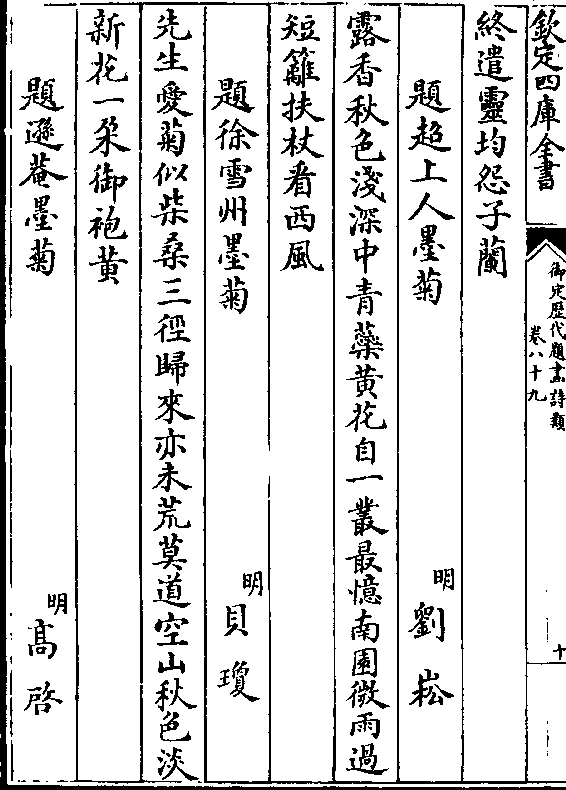 欽定四庫全書
御定歷代題畫詩類
卷八十九
十
終遣靈均怨子蘭
題超上人墨菊
明
劉崧
露香秋色淺深中青蘂黄花自一叢最憶南園微雨過
短籬扶杖看西風
題徐雪州墨菊
明
貝瓊
先生愛菊似柴桑三徑歸來亦未荒莫道空山秋色淡
新花一朶御袍黄
題遯菴墨菊
明
髙啓